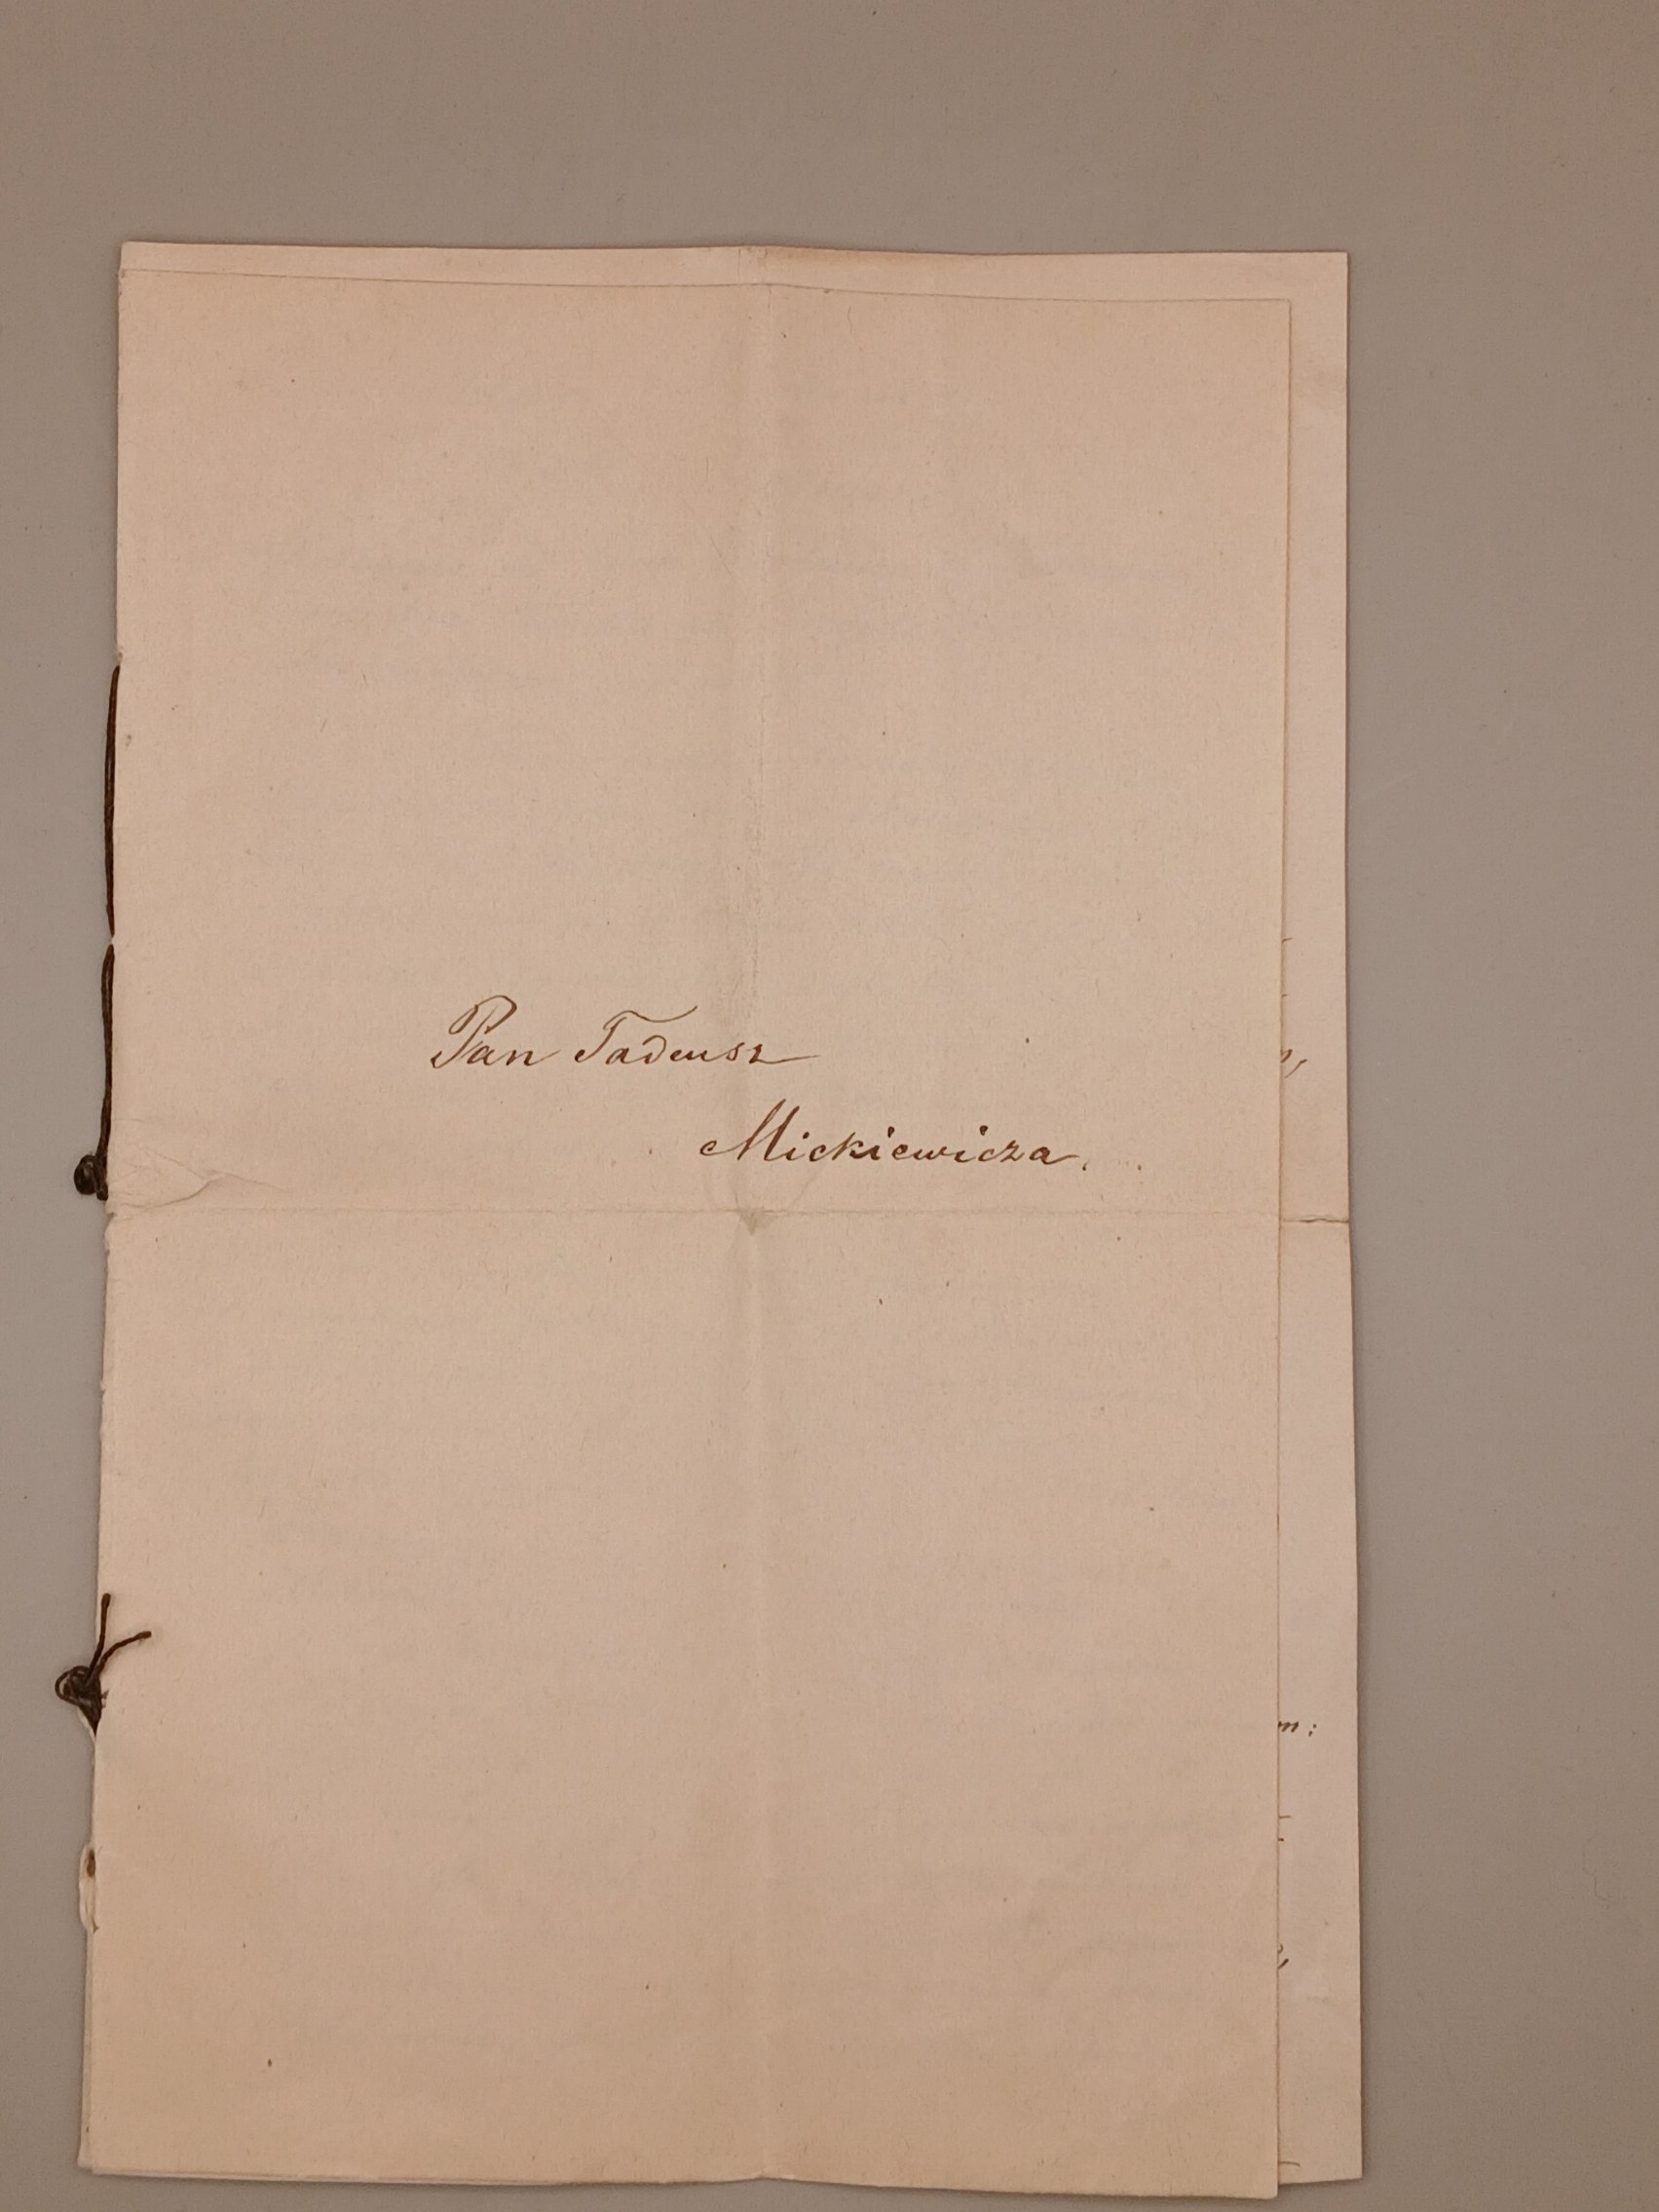 Pan Tadeusz
Mickiewicza.
n,
m: